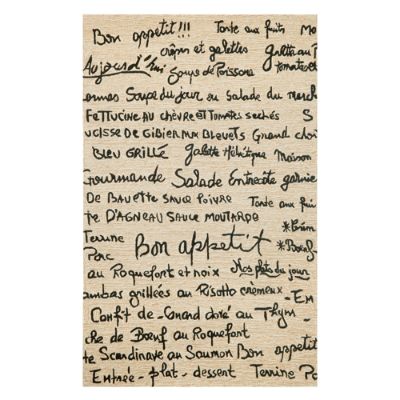 Bon appetit!!! Tarte aux fruits Mo
crêpes et galettes
Aujourd'hui Soupe de Poissons tomates
ermes Soupe du jour ou Salade du march
Fettucine au chèvre et tomates sechés S
ucisse de Gibier aux Bleuets Grand choi
Bleu Grillé Galette Helvétique Maison
Gourmande Salade Entrecôte garnie
De Bavette Sauce Poivre Tarte aux frui
te D'Agneau Sauce Moutarde
Terrine Bon appetit *Boeuf
Porc
au Roquefort et noix Nos plats du jour
ambas grillées au Risotto crémeux - Em
Confit de-Canard doré au Thym
che de Boeuf au Roquefort
te Scandinave au Saumon Bon appetit
Entrée - plat - dessert Terrine Po